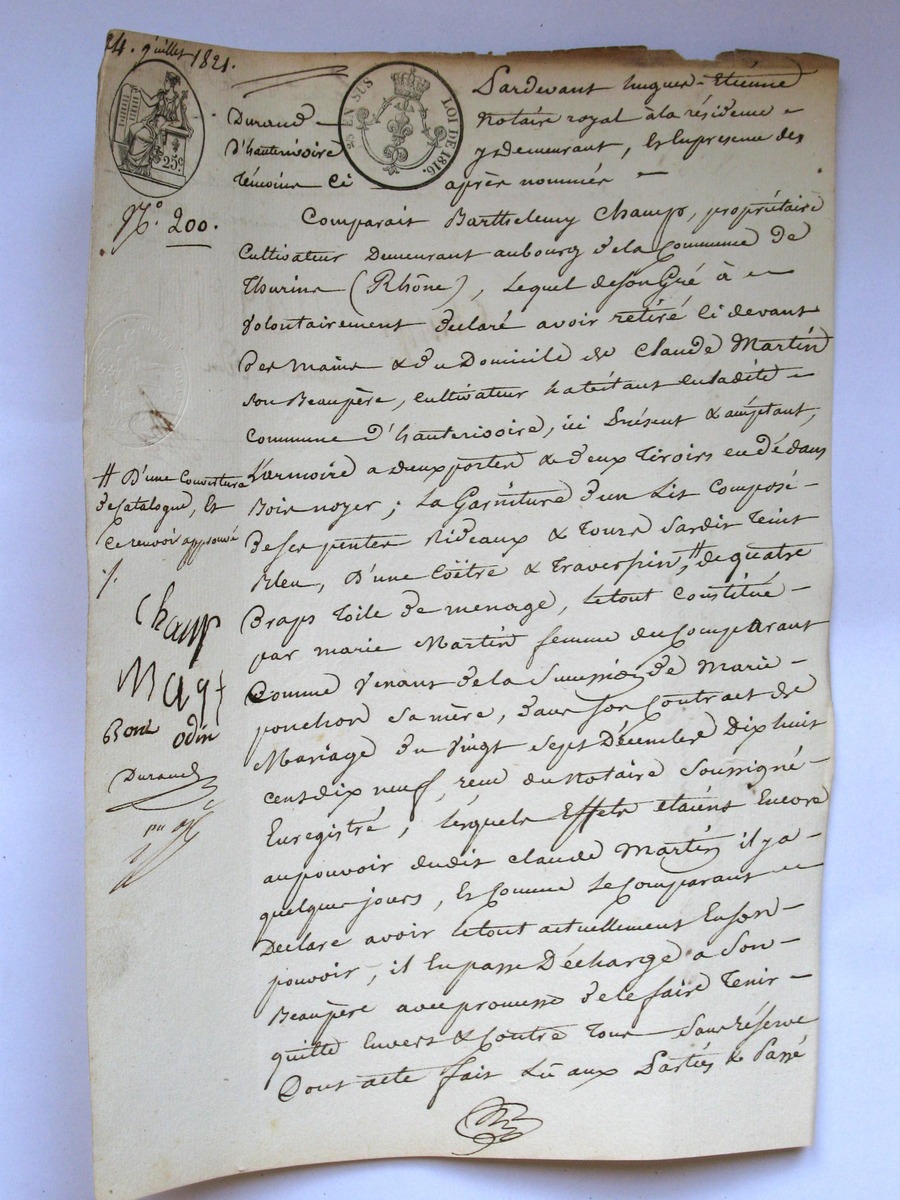 24. Juillet 1821.
25 EN SUS
LOI DE 1816.
25c.
N.° 200.
Pardevant hugues-Etienne
Durand notaire royal à la résidence
D'hauterivoire y demeurant, Et En presence des
témoins Ci après nommés
Comparait Barthelemy Champ, propriétaire
Cultivateur Demeurant au bourg de la Commune de
Thurins (Rhône), Lequel de son Gré &
Volontairement déclaré avoir retiré Ci devant
des mains & du Domicile de Claude Martin
son Beaupère, cultivateur habitant en ladite
Commune D'hauterivoire, ici Présent & acceptant,
L'armoire a deux portes & deux Tiroirs en dédans
Bois noyer; La Garniture d'un Lit Composé
de ses pentes Rideaux & tours Cardis teint
Bleu, D'une Coëtre & Traverspin, # de quatre
Draps Toile de menage, le tout Constitué
par marie Martin femme du Comparant
Comme Venant de la Succession de Marie
ponchon sa mère, dans son Contract de
Mariage du Vingt Sept Décembre Dix huit
cent dix neuf, recu du Notaire Soussigné
Enregistré, lesquels Effets etaient Encore
au pouvoir dudit Claude Martin il y a
quelques jours, Et Comme le Comparant
Déclare avoir le tout actuellement En son
pouvoir, il En passe Décharge a Son
Beaupère avec promesse de le faire Tenir
quitte Envers & Contre Tous Sans réserve
Dont acte fait Lu aux Parties & Passé
# D'une Couverture
de Catalogne, Et
Ce renvoi approuvé
Champ
Bond odin
Durand